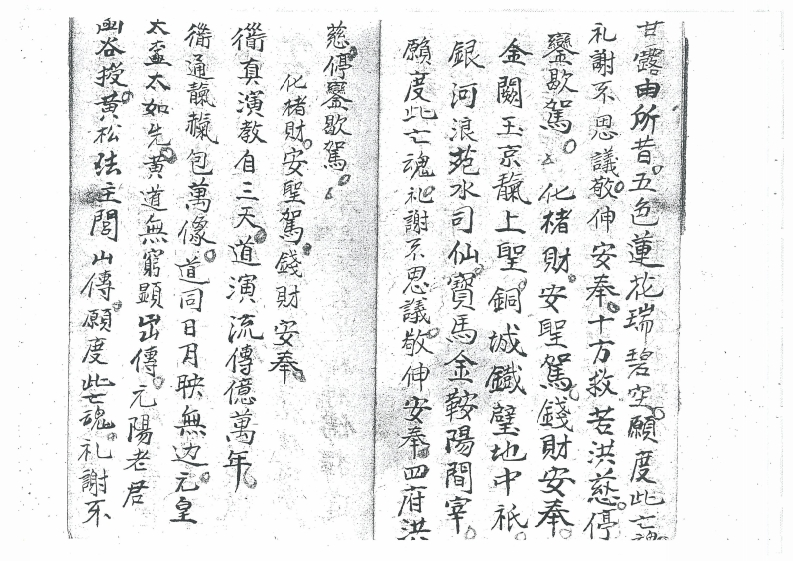 甘露由所昔。五色蓮花瑞碧空。願度此亡魂
礼謝不思議。敬伸安奉。十方救苦洪慈停
鑾歇駕。〻化楮財。安聖駕。錢財安奉。
金闕玉京靝上聖。銅城鐵壁地中祇。
銀河浪苑水司仙。寶馬金鞍陽間宰。
願度此亡魂。礼謝不思議。敬伸安奉。四府洪
慈。停鑾歇駕。〻
化楮財。安聖駕。錢財安奉。
衟真演教自三天。道演流傳億萬年。
衟通靝氣包萬像。道同日月映無边。元皇
太盃太如先。黄道無窮顕岀傳。元陽老君
凾谷授。黄松法主閭山傳。願度此亡魂。礼謝不